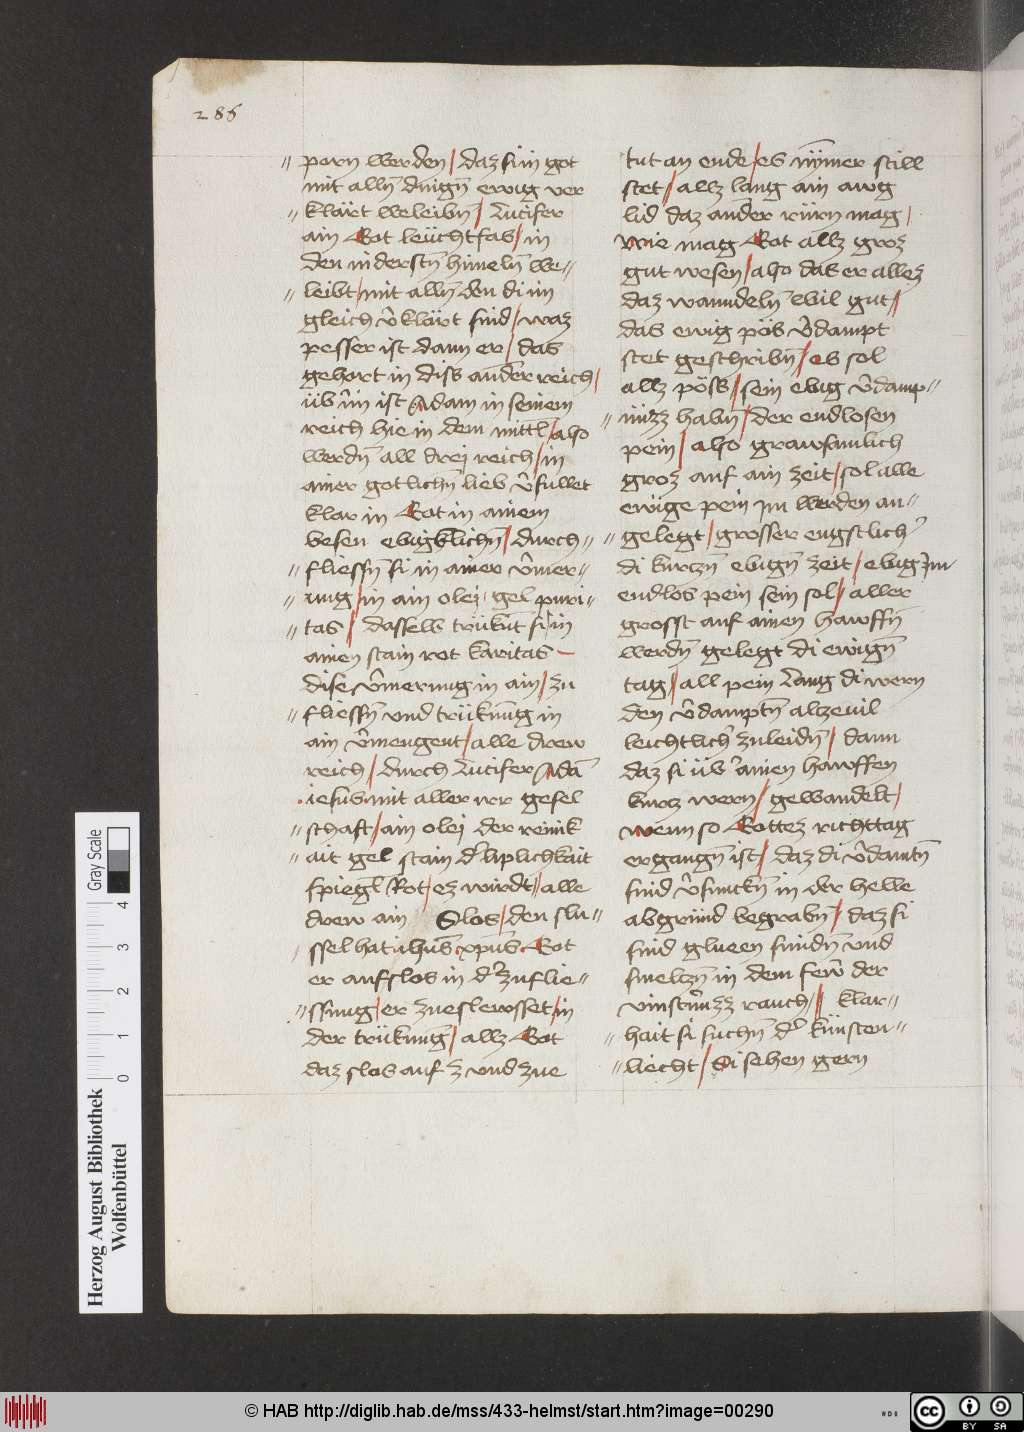 286
porn werden / daz si in got
mit alln̄ dingn̄ ewig ver
klart weleibn̄ / Lucifer
ain Got leucht fas / in
den niderstn̄ himeln̄ we
leibt / mit alln̄ den di im
gleich v̄klärt sind / waz
pesser ist dann er / das
gehort in diss ander reich /
üb̄ im ist Adam in seinem
reich hie in dem mittl̄ / also
werdn̄ all drei reich / in
ainer gotlichn̄ lieb v̄fullet
klar in Got in ainem
besen ebigklichn̄ / durch
fliessn̄ si in ainer v̄mer
ung / in ain olei gel puri
tas / dasselb trükn̄t si / in
ainen stain rot karitas
dise v̄merung in ain / zu
fliessn̄ und trükn̄ung in
ain v̄mengent / alle drew
reich / durch Lucifer Adā
iesus mit aller irr gesel
schaft / ain olei der reinik
ait gel stain d' liplichkait
spiegl̄ Rot / ez wirdt / alle
drew ain Slos / den slu
ssel hat ihūs xpūs Got
er aufslos in d' zuflie
ssung / er zueslewsset / in
der trükn̄ung / allz Got
daz slos auf z und zue
tut an ende / es nȳmer still
stet / allz lang ain awg
lid daz ander rürn mag /
wie mag Got allz groz
gut wesen / also das er allez
daz wanndeln̄ wil gut /
das ewig pös v̄dampt
stet geschribn̄ / es sol
allz pöss / sein ebig v̄damp
nuzz habn̄ / der endlosen
pein / also grawsamlich
groz auf ain zeit / sol alle
ewige pein im werden an
gelegt / grosser engstlich'
di kurczn̄ ebign̄ zeit / ebig im
endlos pein sein sol / aller
grosst auf ainen hawffn̄
werdn̄ gelegt di ewign̄
tag / all pein lang di wern
den v̄damptn̄ alzeuil
leichtlich' zuleidn̄ / dann
daz si üb' ainen hawffen
kurcz wern / gewandelt /
wenn so Gottez richttag
ergangn̄ ist / daz di v̄damtn̄
sind v̄sunckn̄ in der helle
abgründ begrabn̄ / daz si
sind glueen sundn̄ und
smelczn̄ in dem fewr der
vinstn̄uzz rauch / klar
hait si suchn̄ d' künsten
liecht / Si sehen gern
Herzog August Bibliothek
Wolfenbüttel
0 1 2 3 4
Gray Scale
© HAB http://diglib.hab.de/mss/433-helmst/start.htm?image=00290
cc BY SA